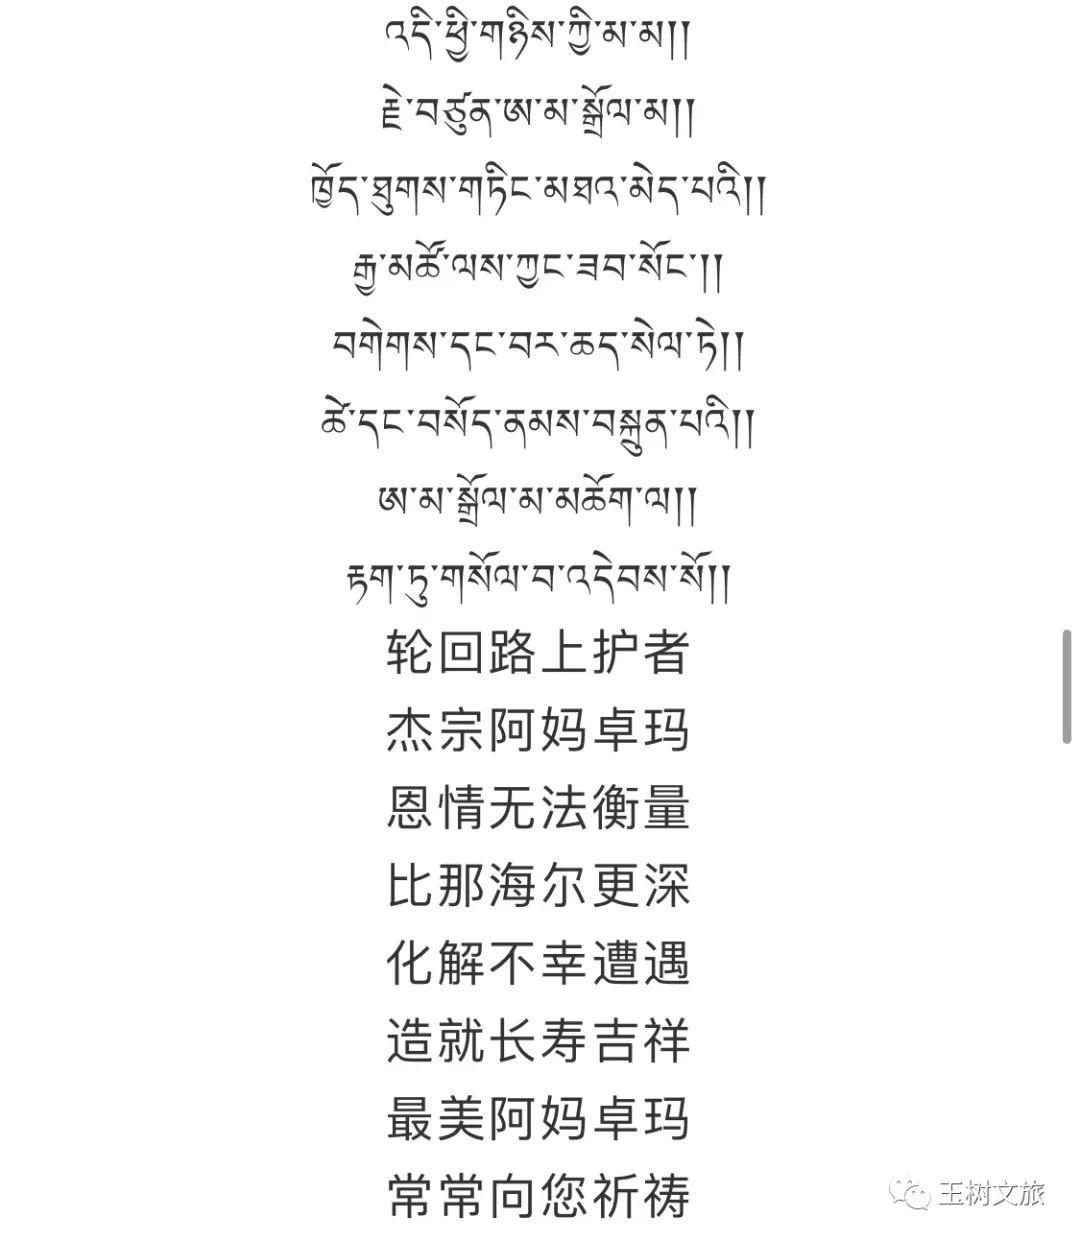 འདི་ཕྱི་གཉིས་ཀྱི་མ་མ།།
རྗེ་བཙུན་ཨ་མ་སྒྲོལ་མ།།
ཁྱོད་ཐུགས་གཏིང་མཐའ་མེད་པའི།།
རྒྱ་མཚོ་ལས་ཀྱང་ཟབ་སོང་།།
བགེགས་དང་བར་ཆད་སེལ་ཏེ།།
ཚེ་དང་བསོད་ནམས་བསྐྲུན་པའི།།
ཨ་མ་སྒྲོལ་མ་མཆོག་ལ།།
རྟག་ཏུ་གསོལ་བ་འདེབས་སོ།།
轮回路上护者
杰宗阿妈卓玛
恩情无法衡量
比那海尔更深
化解不幸遭遇
造就长寿吉祥
最美阿妈卓玛
常常向您祈祷
玉树文旅